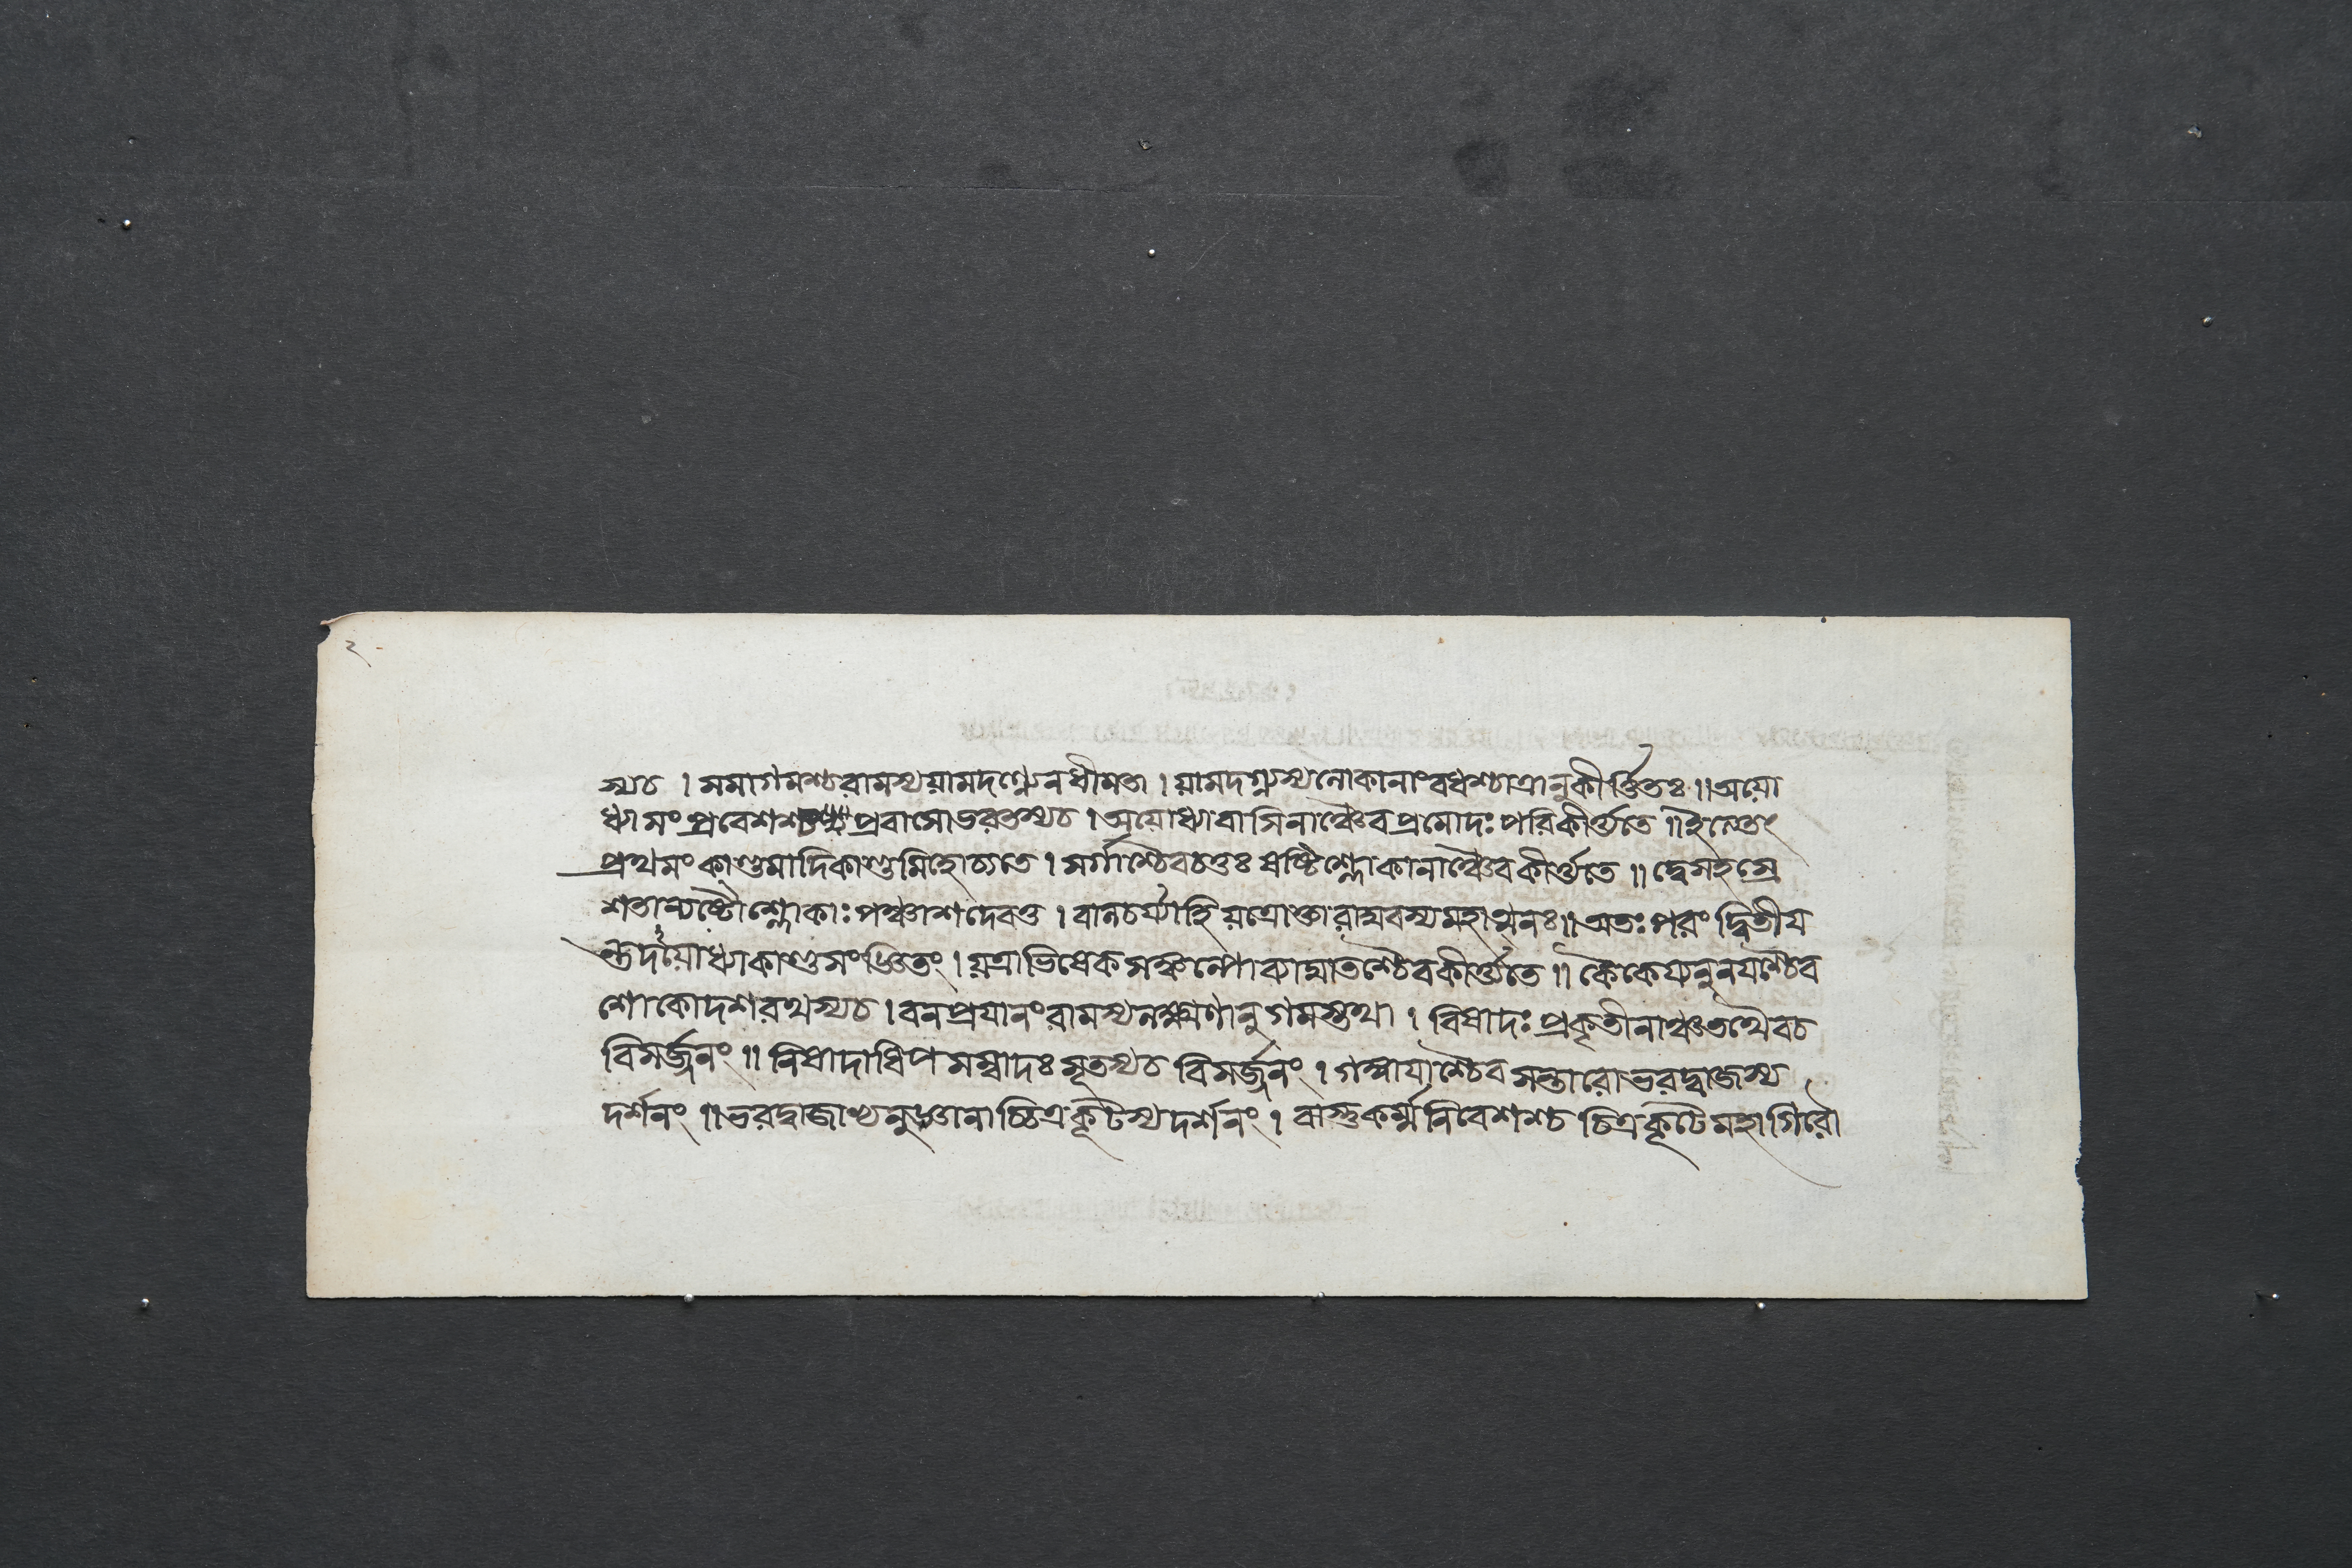 ২
স্যচ । সমাগমশ্চরামস্যয়ামদগ্ন্যেনধীমতা । য়ামদগ্ন্যস্যলোকানাংবধশ্চাত্রানুকীর্ত্তিতঃ ॥ অয়ো
ধ্যাসংপ্রবেশশ্চ প্রবাসোভরতস্যচ । অয়োধ্যাবাসিনাঞ্চৈবপ্রমোদঃ পরিকীর্ত্ত্যতে ॥ ইত্যেতং
প্রথমং কাণ্ডমাদিকাণ্ডমিহোচ্যতে । সর্গাশ্চৈবচতুঃ ষষ্টিশ্লোকানাঞ্চৈবকীর্ত্ত্যতে ॥ দ্বেসহস্রে
শতান্যষ্টৌশ্লোকাঃ পঞ্চাশদেবতু । বালচর্য্যাহিয়ত্রোক্তারাঘবস্যমহাত্মনঃ ॥ অতঃ পরং দ্বিতীয
ন্তুদয়োধ্যাকাণ্ডসংজ্ঞিতং । য়ত্রাভিষেকসঙ্কল্পোব্যাঘাতশ্চৈবকীর্ত্ত্যতে ॥ কৈকেয্যনুনযশ্চৈব
শোকোদশরথস্যচ । বনপ্রযানংরামস্যলক্ষ্মণানুগমস্তথা । বিষাদঃ প্রকৃতীনাঞ্চতথৈবচ
বিসর্জ্জনং ॥ নিষাদাধিপসম্বাদঃ সূতস্যচ বিসর্জ্জনং । গঙ্গাযাশ্চৈবসন্তারোভরদ্বাজস্য
দর্শনং ॥ ভরদ্বাজাভ্যনুজ্ঞানাচ্চিত্রকূটস্যদর্শনং । বাস্তুকর্ম্মনিবেশশ্চ চিত্রকূটেমহাগিরৌ